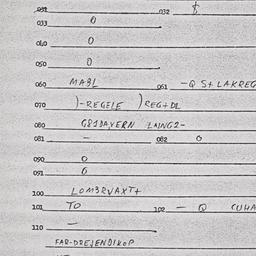 032 032
033 0
040 0
050 0
060 MABL 061 -Q St LAKREG
070 )-REGELE )REG+DL
080 G81DAVERN LAING2-
081 - 082 0
090 0
091 0
100 LOM3RVAXT+
101 TO 102 - Q CUHA
110 -
FAR-DREJENDIKOP